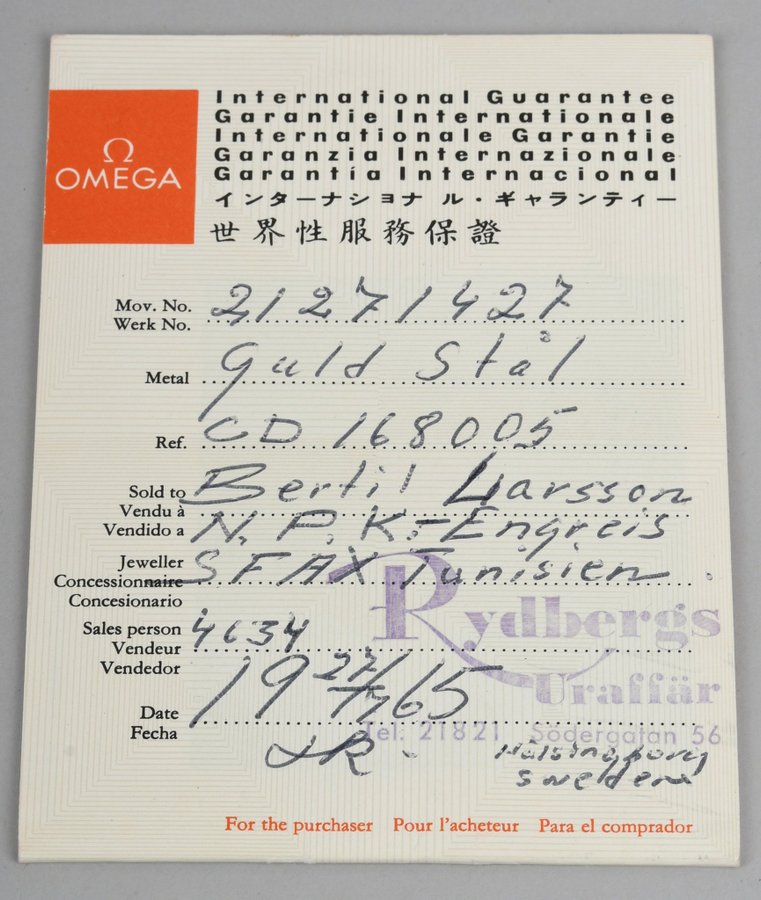 Ω
OMEGA
International Guarantee
Garantie Internationale
Internationale Garantie
Garanzia Internazionale
Garantía Internacional
インターナショナル・ギャランティー
世界性服務保證
Mov. No.
Werk No. 21271427
Metal Guld Stål
Ref. CD 168005
Sold to Bertil Larsson
Vendu à
Vendido a N.P.K.-Engreis
Jeweller SFAX Tunisien
Concessionnaire
Concesionario
Rydbergs
Sales person 4634
Vendeur
Vendedor
Uraffär
Date 19 27/7 65
Fecha
Tel. 21821 Södergatan 56
JR. Hälsingborg
Sweden
For the purchaser Pour l'acheteur Para el comprador